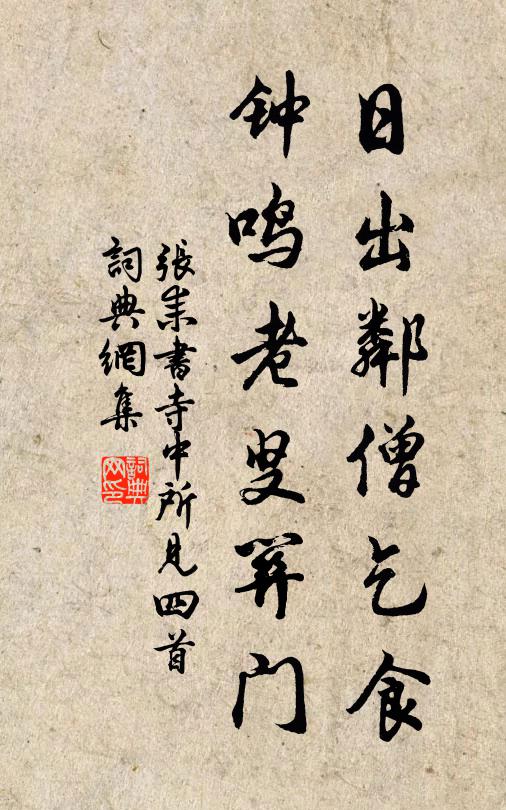 日出鄰僧乞食
钟鸣老叟关门
張耒書寺中所見四首
詞典網集
詞典
网印